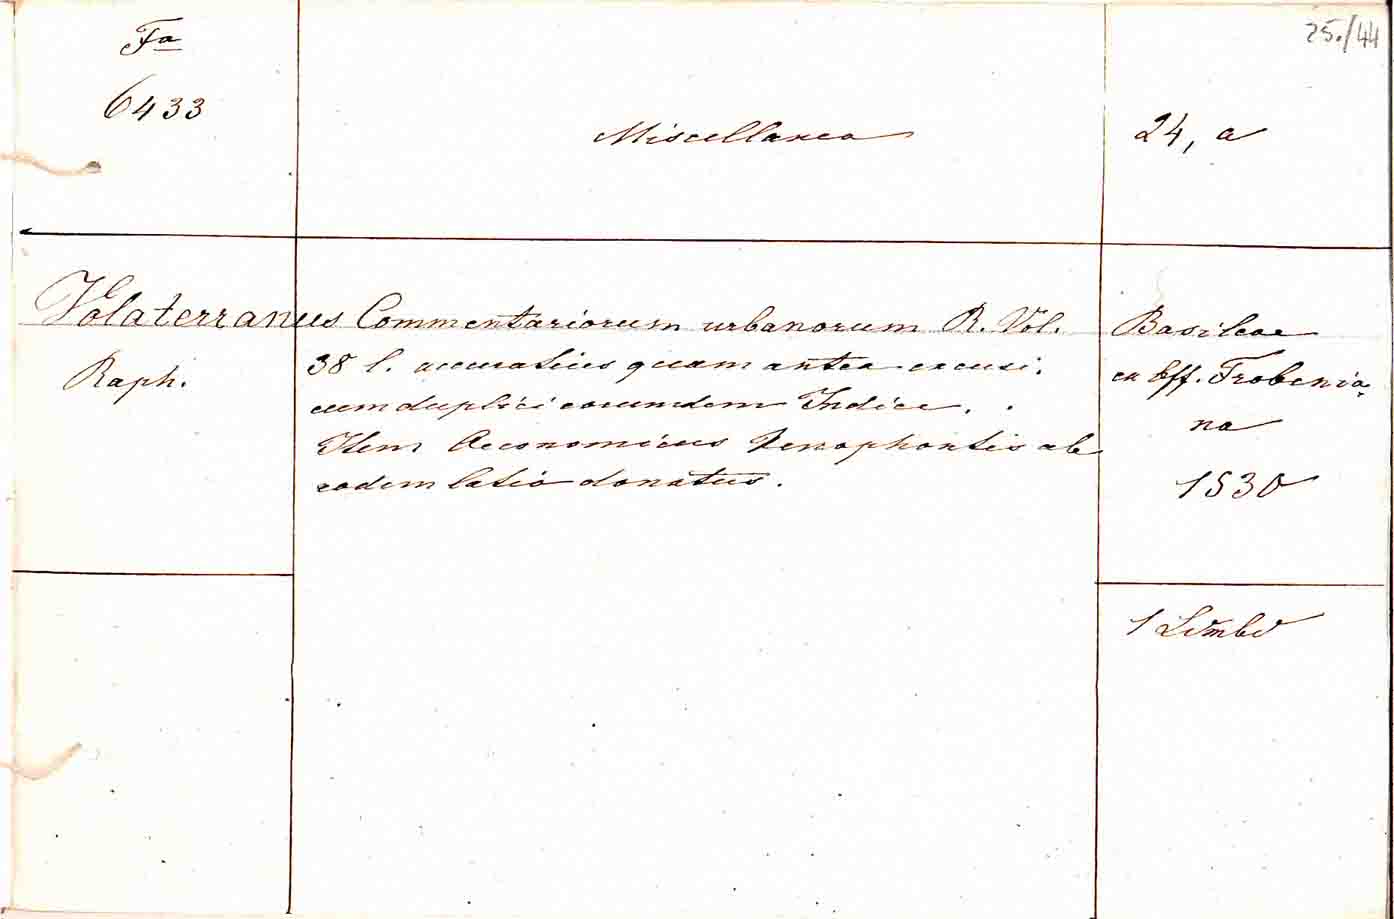 Fa
6433
Miscellanea
24, a
25./44
Volaterranus
Raph.
Commentariorum urbanorum R. Vol.
38 l. accuratius quam antea excusi.
cum duplici eorumdem Indice.
Item Oeconomicus Xenophontis ab
eodem latio donatus.
Basileae
ex Off. Frobenia-
na
1530
1